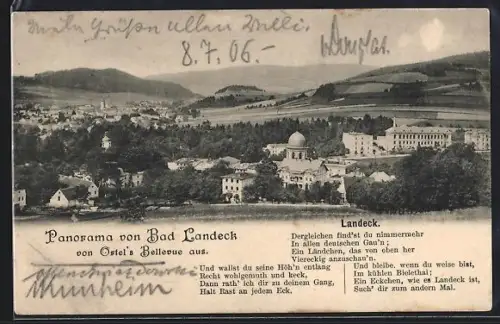 8.7.06.-
Landeck.
Panorama von Bad Landeck
von Ostel's Bellevue aus.
Dergleichen find'st du nimmermehr
In allen deutschen Gau'n;
Ein Ländchen, das von oben her
Viereckig anzuschau'n.
Und wallst du seine Höh'n entlang
Recht wohlgemuth und keck,
Dann rath' ich dir zu deinem Gang,
Halt Rast an jedem Eck.
Und bleibe, wenn du weise bist,
Im kühlen Bielethal;
Ein Eckchen, wie es Landeck ist,
Such' dir zum andern Mal.